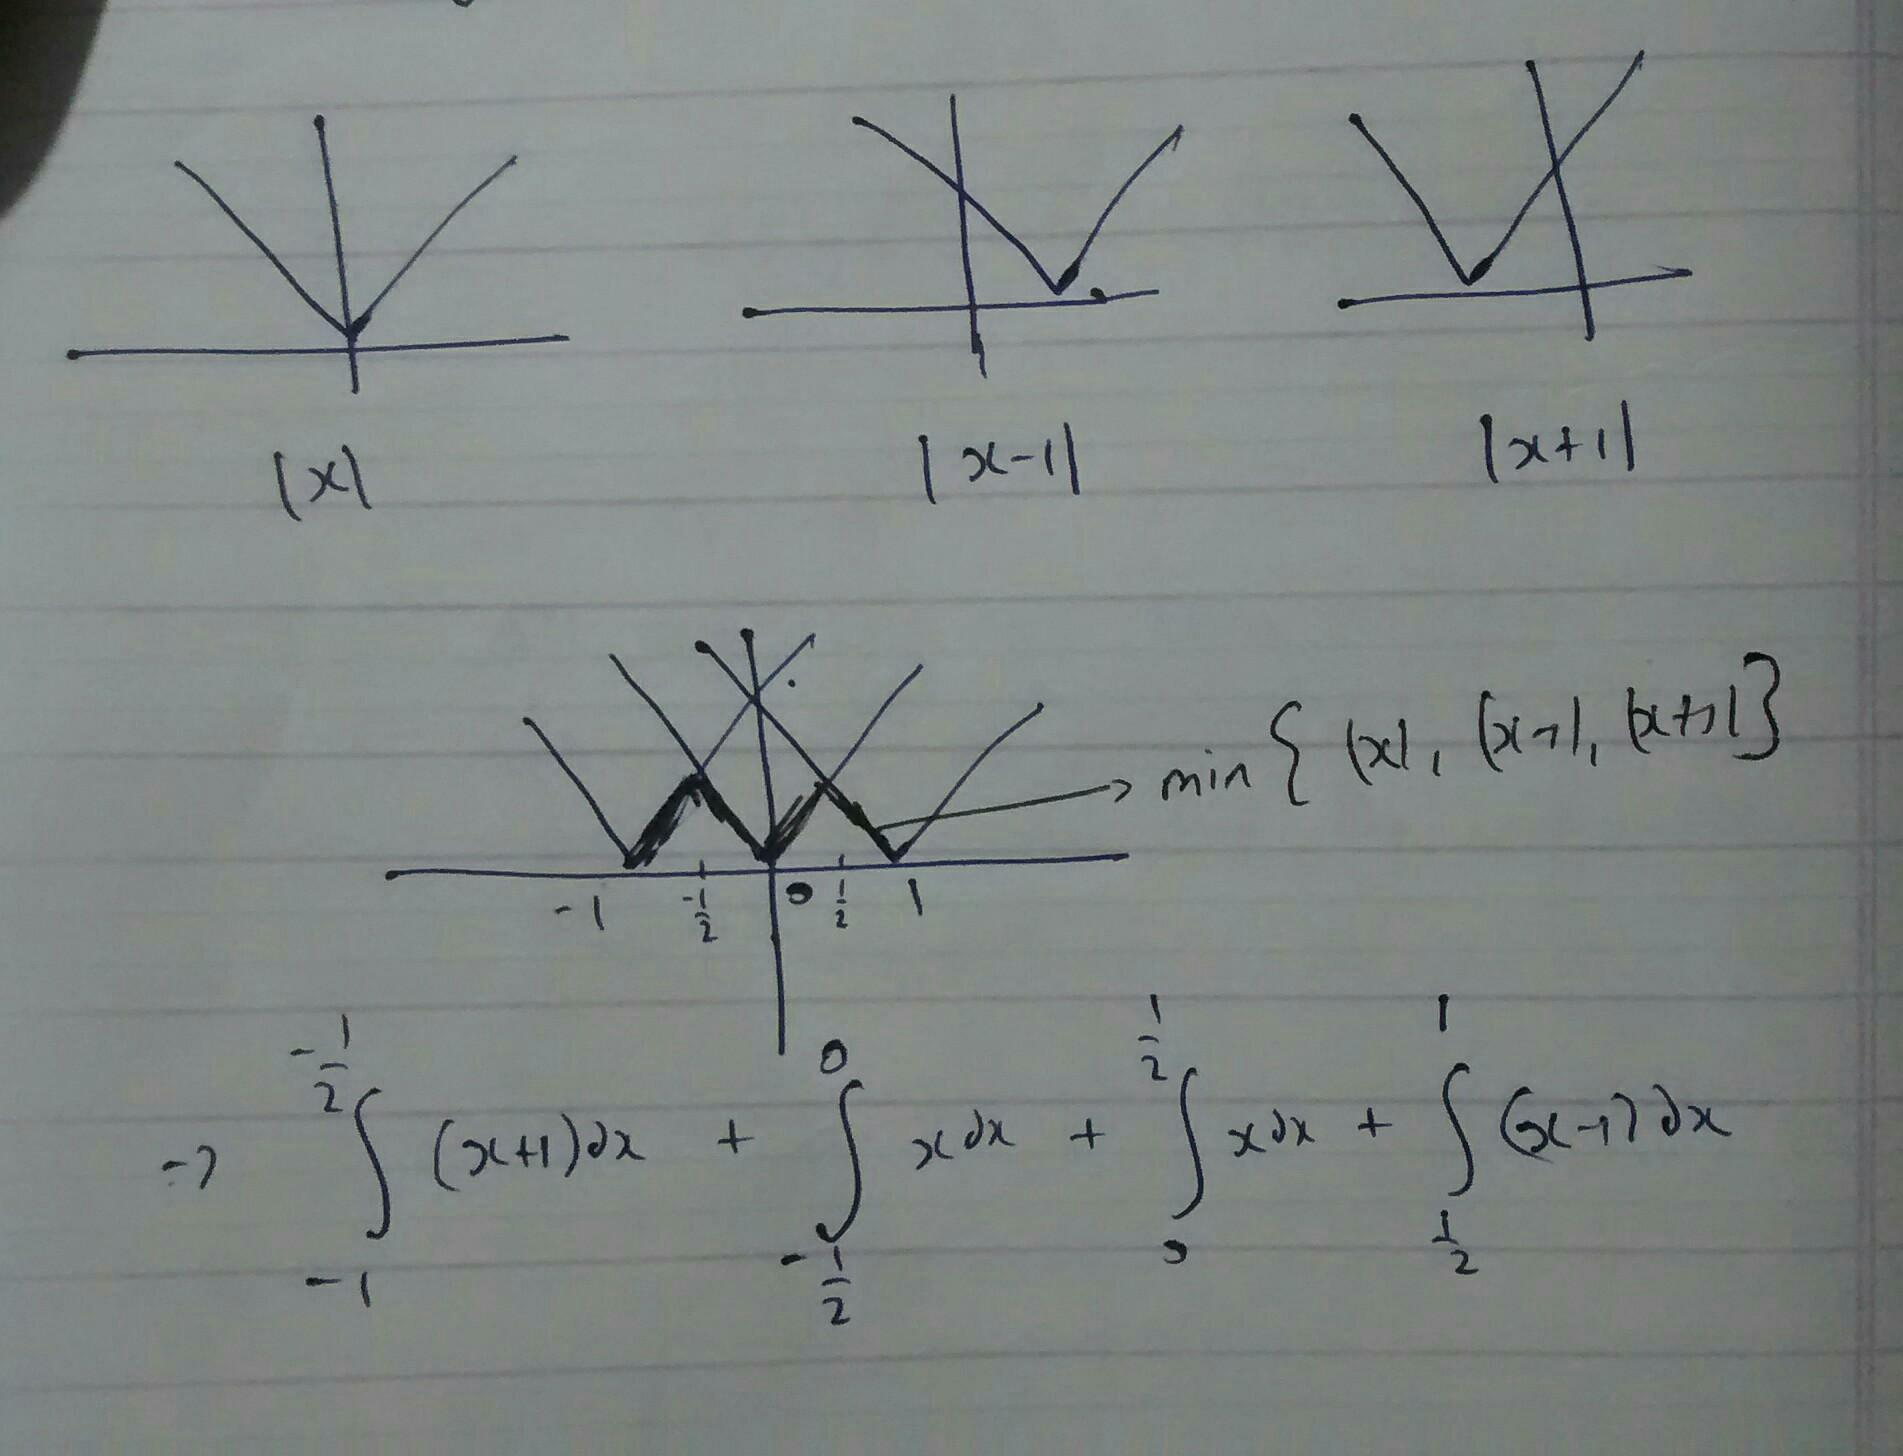 |x| |x-1| |x+1|
min { |x|, |x-1|, |x+1| }
-1 -1/2 0 1/2 1
→ ∫_{-1}^{-1/2} (x+1)dx + ∫_{-1/2}^{0} x dx + ∫_{0}^{1/2} x dx + ∫_{1/2}^{1} (x-1) dx